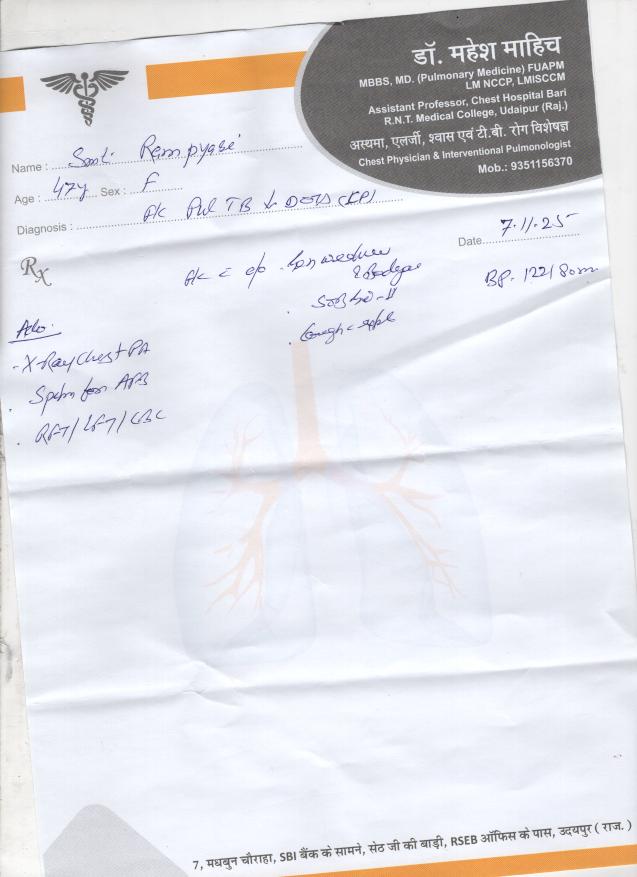 डॉ. महेश माहिच
MBBS, MD. (Pulmonary Medicine) FUAPM
LM NCCP, LMISCCM
Assistant Professor, Chest Hospital Bari
R.N.T. Medical College, Udaipur (Raj.)
अस्थमा, एलर्जी, श्वास एवं टी.बी. रोग विशेषज्ञ
Chest Physician & Interventional Pulmonologist
Mob.: 9351156370
Name : Smt. Rampyari
Age : 47y Sex : F
Diagnosis : Pul TB DOTS
Date 7.11.25
Rx
BP - 122/80 mm
Adv.
- X-Ray Chest PA
. Sputm for AFB
. RFT/LFT/CBC
7, मधबुन चौराहा, SBI बैंक के सामने, सेठ जी की बाड़ी, RSEB ऑफिस के पास, उदयपुर ( राज. )